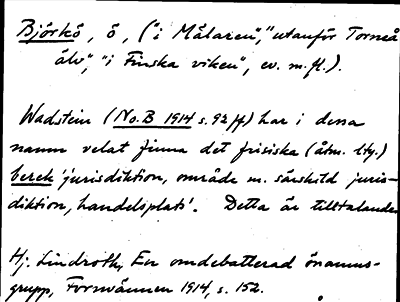 Björkö, ö, ("i Mälaren", "utanför Torneå
älv", "i Finska viken", ev. m.fl.).
Wadstein (No.B 1914 s. 92 ff) har i dessa
namn velat finna det frisiska (åtm. lty.)
berek 'jurisdiktion, område m. särskild juris-
diktion, handelsplats'. Detta är tilltalande
Hj. Lindroth, En omdebatterad önamns-
grupp, Fornvännen 1914, s. 152.